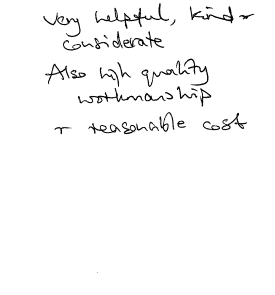 Very helpful, kind &
considerate
Also high quality
workmanship
& reasonable cost